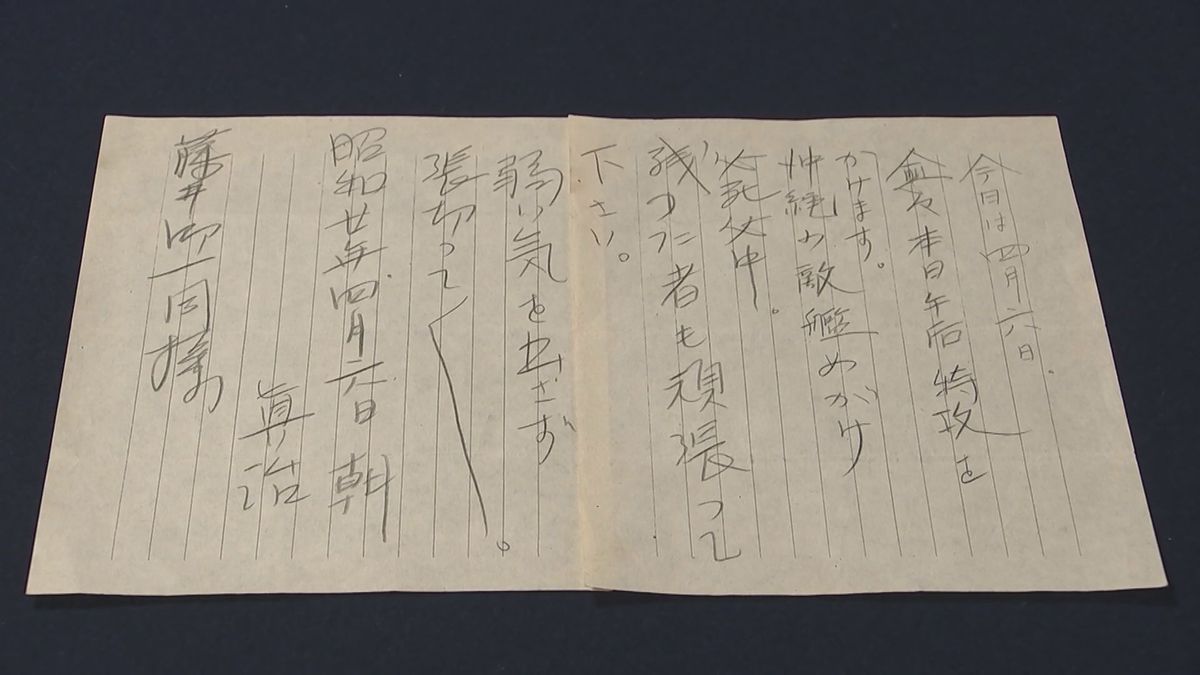 今日は四月六日.
愈々本日午后特攻を
かけます。
沖縄の敵艦めがけ
必死必中。
残つた者も頑張って
下さい。
弱い気を出さず
張切って〱。
昭和廿年四月六日 朝
眞治
藤井御一同様